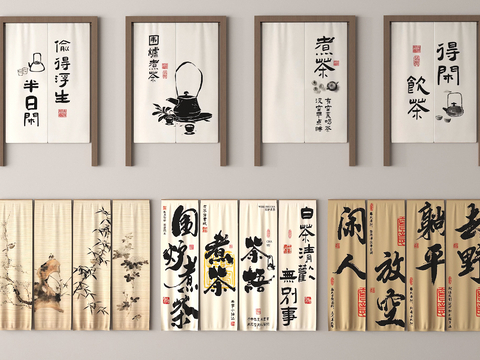 偷得浮生
半日閑
圍爐煮茶
煮茶
得閑
飲茶
围炉煮茶
煮茶
茶悟
白茶清歡
無别事
闲人
放空
躺平
去野